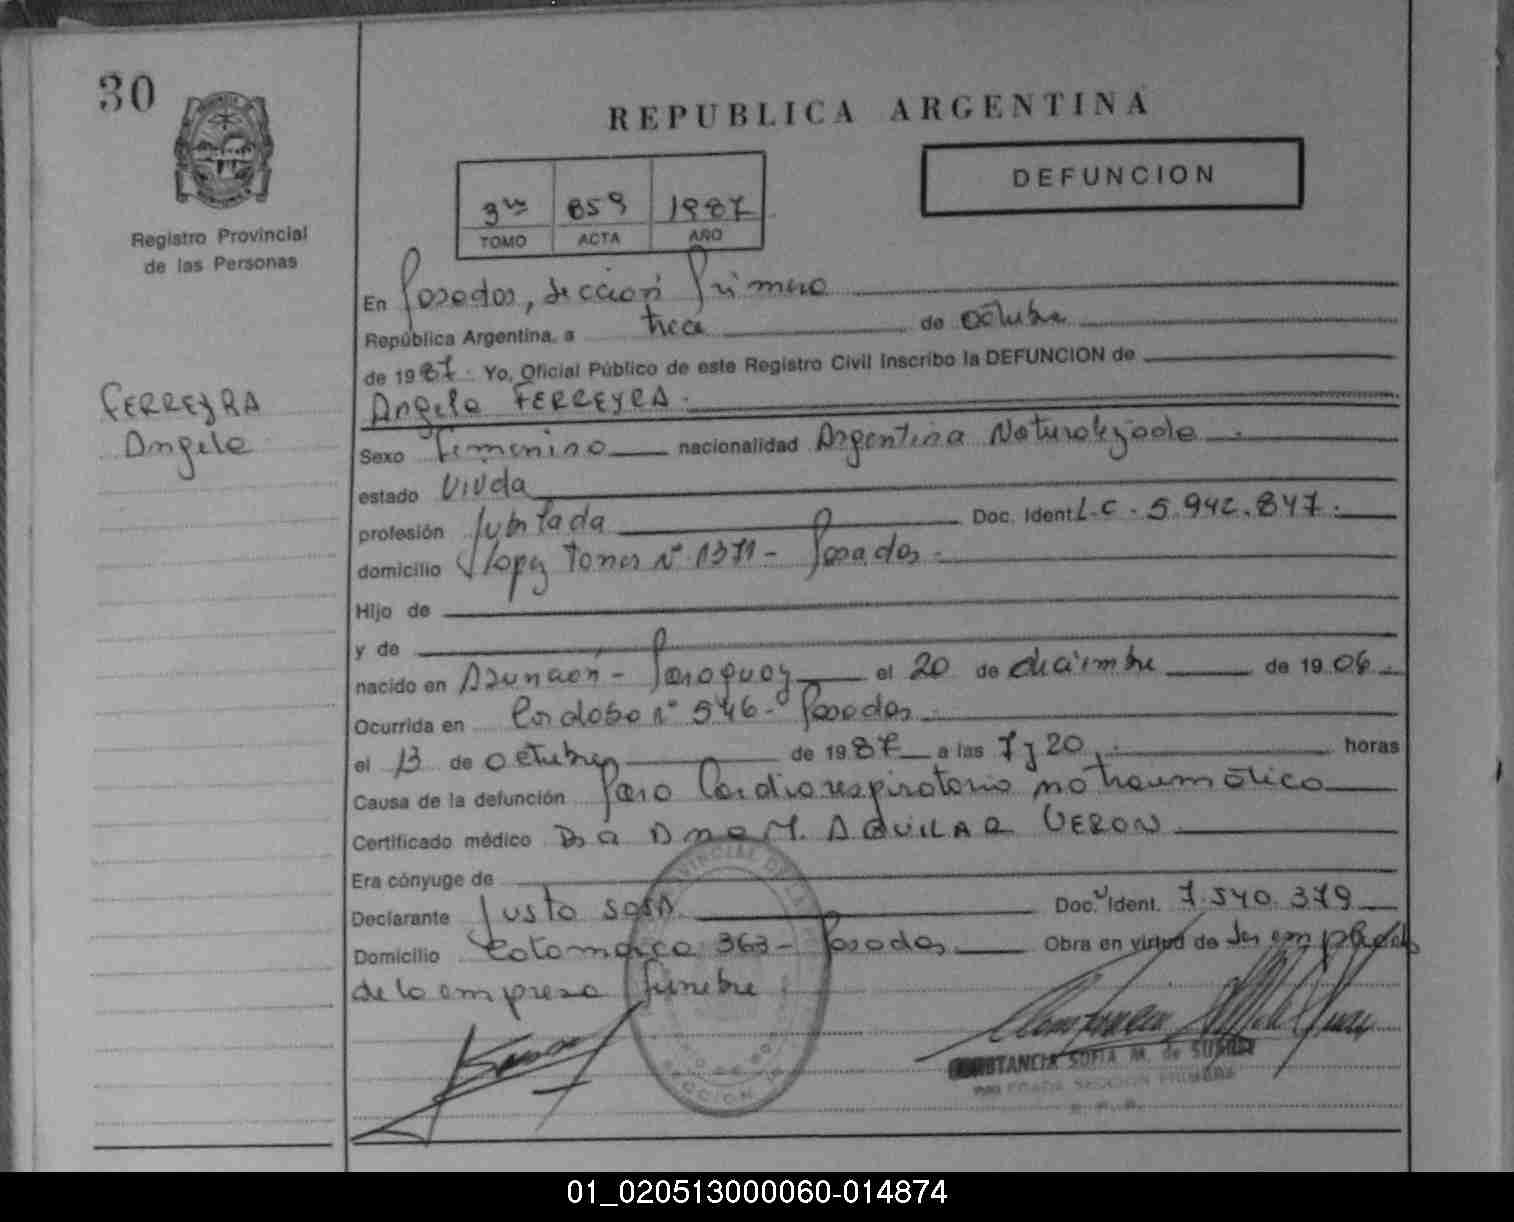 30
REPUBLICA ARGENTINA
DEFUNCION
3ro 859 1987
TOMO ACTA AÑO
Registro Provincial
de las Personas
FERREYRA
Angela
En Posadas, Sección Primera
República Argentina, a trece de octubre
de 1987. Yo, Oficial Público de este Registro Civil Inscribo la DEFUNCION de
Angela FERREYRA.
Sexo Femenino nacionalidad Argentina Naturalizada
estado Viuda
profesión Jubilada Doc. Ident. L.C. 5.942.847.
domicilio López Torres Nº 1371 - Posadas.
Hijo de
y de
nacido en Asunción - Paraguay el 20 de diciembre de 1906
Ocurrida en Córdoba nº 546 - Posadas
el 13 de octubre de 1987 a las 7 y 20 horas
Causa de la defunción Paro Cardiorespiratorio no traumático
Certificado médico Dra Ana M. AGUILAR VERON
Era cónyuge de
Declarante Justo SOSA Doc. Ident. 7.540.379
Domicilio Catamarca 363 - Posadas Obra en virtud de ser empleado
de la empresa fúnebre
CONSTANCIA SOFIA M. de
DELEGADA SECCION PRIMERA
R. P. P.
01_020513000060-014874